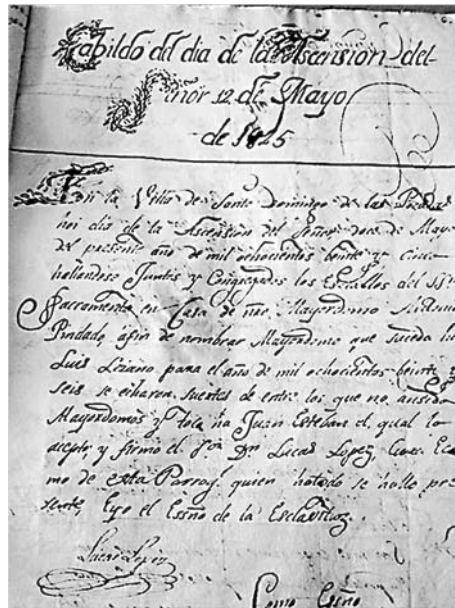 Cabildo del dia de la Ascension del
Señor 12 de Mayo
de 1825
En la Villa de Santo Domingo de las Posadas
hoi dia de la Ascension del Señor doce de Mayo
del presente año de mil ochocientos beinte y cinco
hallandose Juntos y Congregados los Escallos del SSmo
Sacramento en Casa de nro Mayordomo Antonio
Pindado, afin de nombrar Mayordomo que suceda ha
Luis Lozano para el año de mil ochocientos beinte y
seis se echaron suertes de entre los que no ansido
Mayordomos y toca ha Juan Esteban el qual lo
acepto, y firmo el Sor Dn Lucas Lopez, Cura Eco
mo de esta Parroq.l quien hatodo se hallo pre
sente, Eyo el Essno de la Esclavitud.
Lucas Lopez
Como Essno